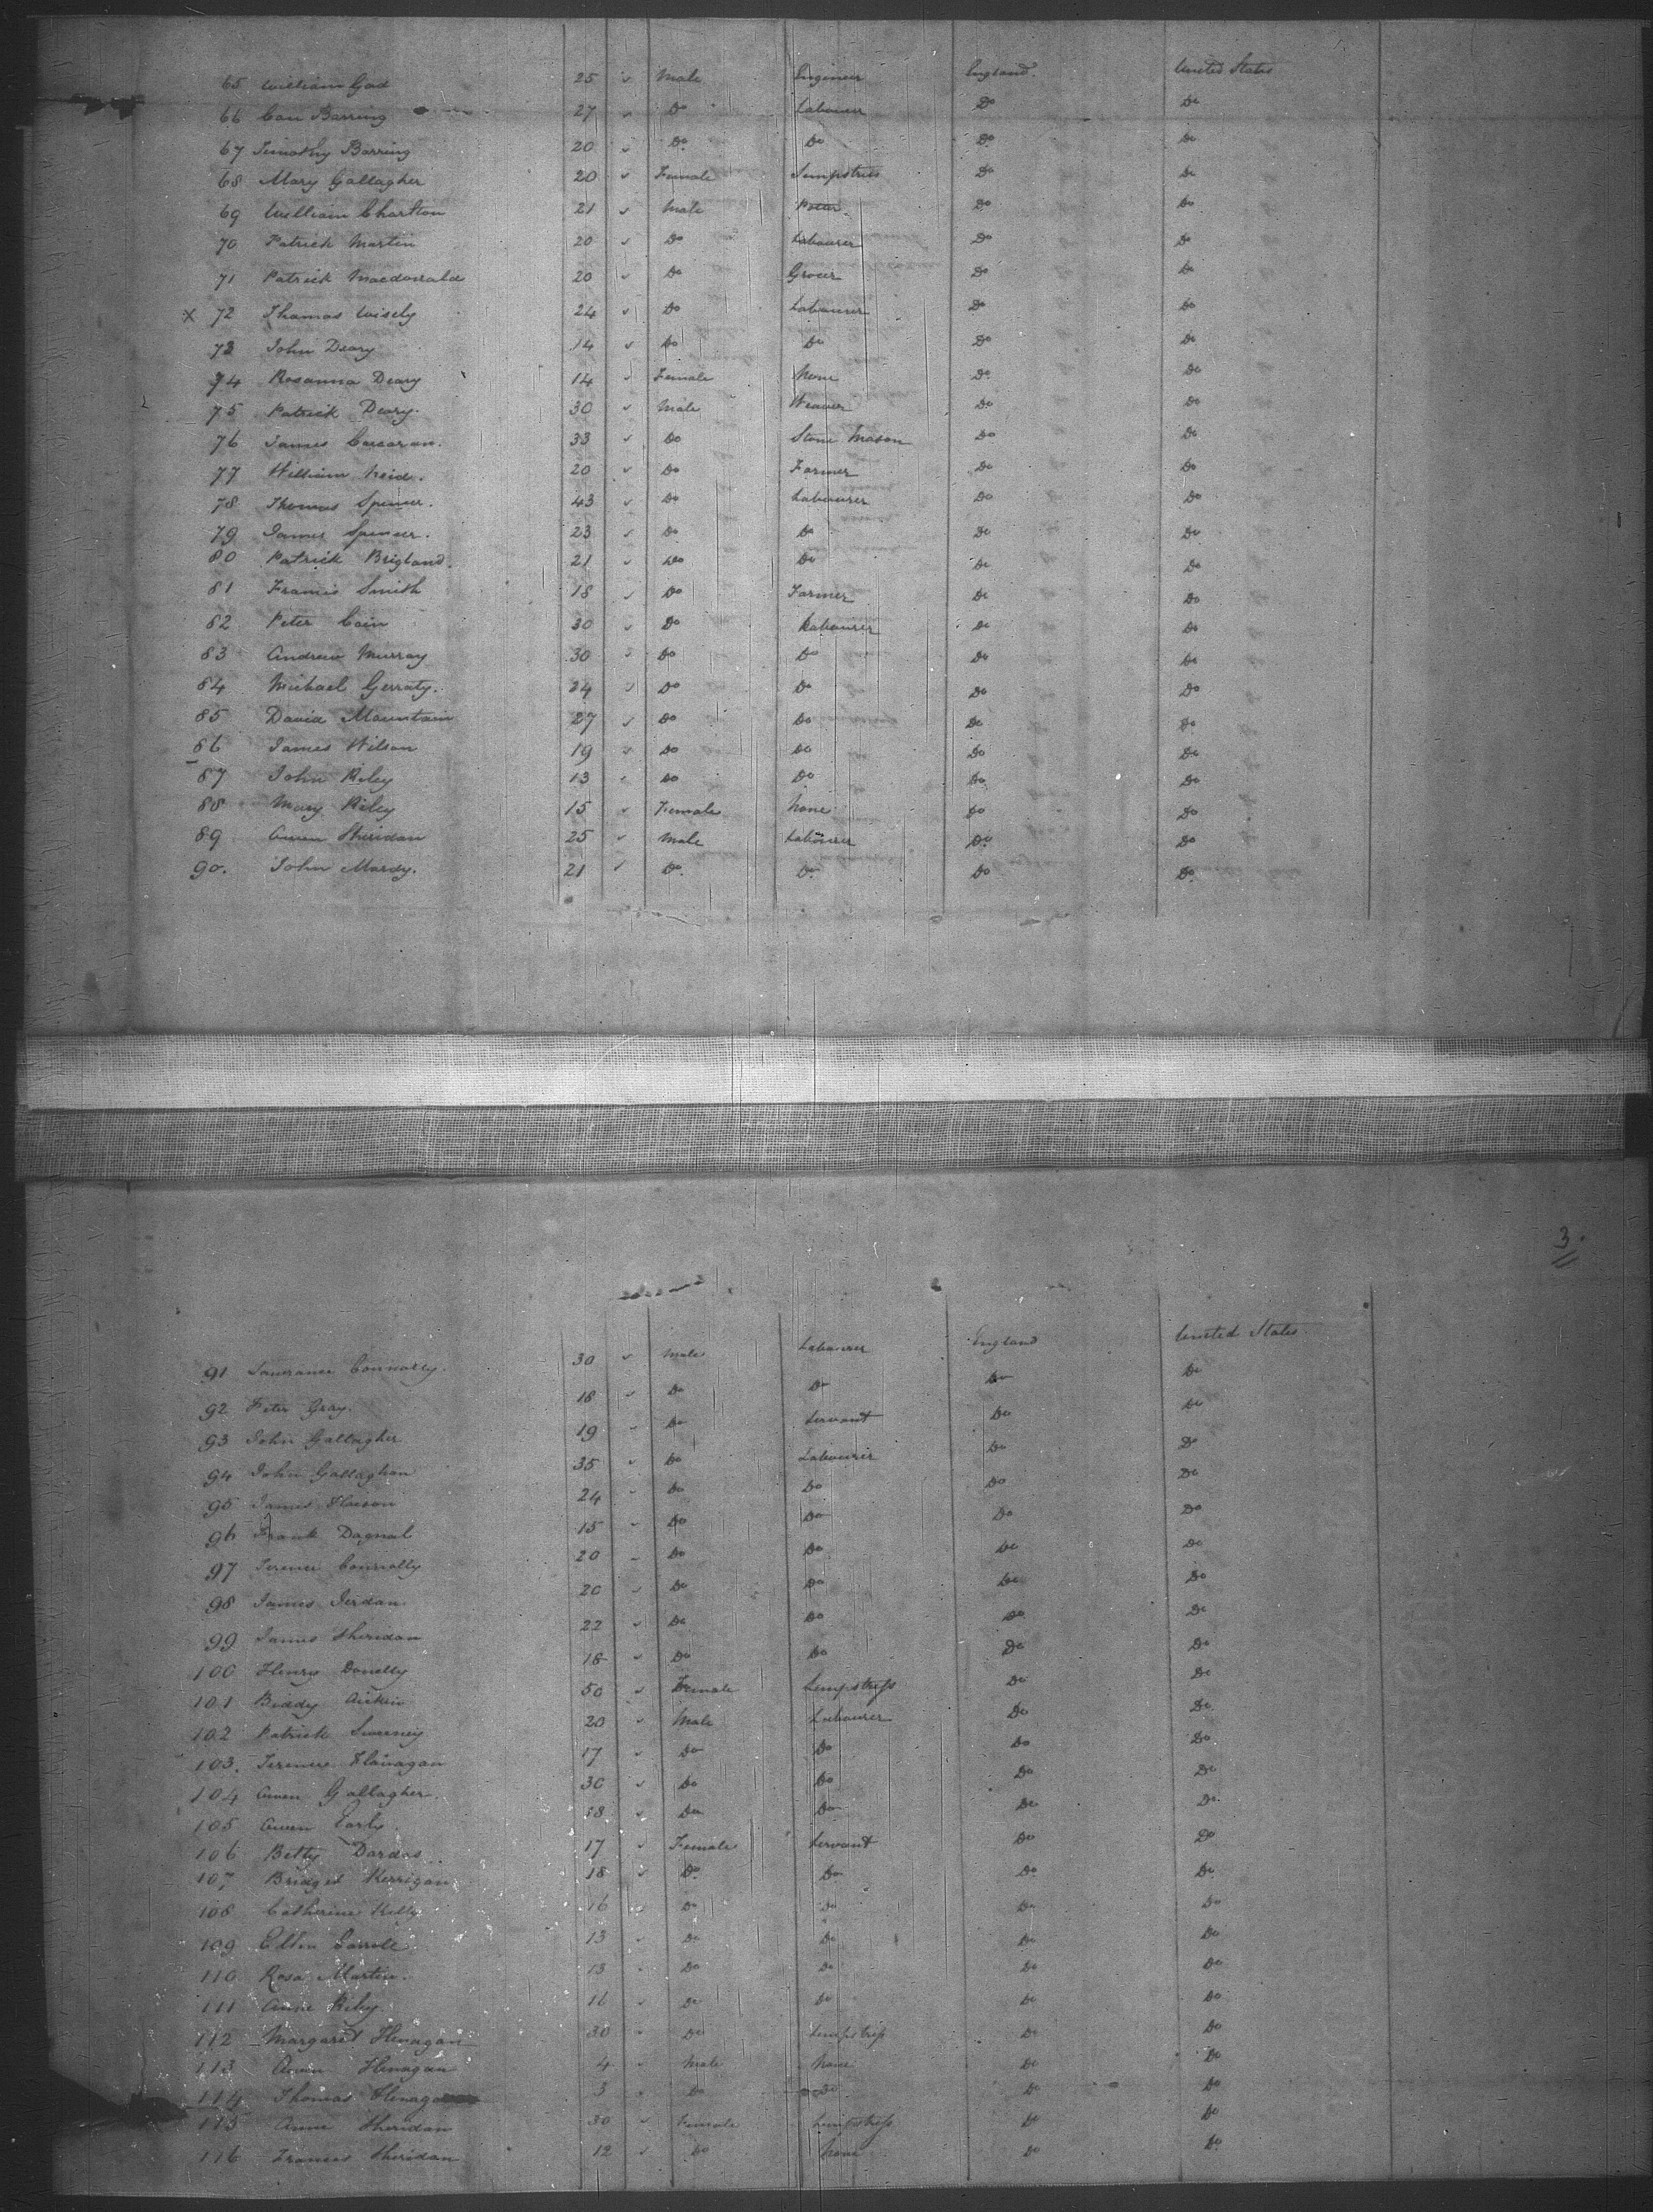 65 William Gad 25 Male Engineer England United States
66 Con Barring 27 Do Labourer Do Do
67 Timothy Barring 20 Do Do Do Do
68 Mary Gallagher 20 Female Sempstress Do Do
69 William Charlton 21 Male Potter Do Do
70 Patrick Martin 20 Do Labourer Do Do
71 Patrick Macdonald 20 Do Grocer Do Do
X 72 Thomas Wisely 24 Do Labourer Do Do
73 John Deary 14 Do Do Do Do
74 Rosanna Deary 14 Female None Do Do
75 Patrick Deary. 30 Male Weaver Do Do
76 James Corcoran. 33 Do Stone Mason Do Do
77 William Reid. 20 Do Farmer Do Do
78 Thomas Spencer. 43 Do Labourer Do Do
79 James Spencer. 23 Do Do Do Do
80 Patrick Brigland. 21 Do Do Do Do
81 Francis Smith 18 Do Farmer Do Do
82 Peter Cain 30 Do Labourer Do Do
83 Andrew Murray 30 Do Do Do Do
84 Michael Gerraty. 24 Do Do Do Do
85 David Mountain 27 Do Do Do Do
86 James Wilson 19 Do Do Do Do
87 John Riley 13 Do Do Do Do
88 Mary Riley 15 Female None Do Do
89 Owen Sheridan 25 Male Labourer Do Do
90. John Mardy. 21 Do Do Do Do
3.
91 Lawrance Connolly. 30 Male Labourer England United States
92 Peter Gray. 18 Do Do Do Do
93 John Gallagher 19 Do Servant Do Do
94 John Gallaghan 35 Do Labourer Do Do
95 James 24 Do Do Do Do
96 Frank Dagnal 15 Do Do Do Do
97 Terence Connolly 20 Do Do Do Do
98 James Jerdan 20 Do Do Do Do
99 James Sheridan 22 Do Do Do Do
100 Henry Donelly 18 Do Do Do Do
101 Biddy Aiken 50 Female Sempstress Do Do
102 Patrick Sweeney 20 Male Labourer Do Do
103. Terence Flanagan 17 Do Do Do Do
104 Owen Gallagher. 30 Do Do Do Do
105 Owen Early. 18 Do Do Do Do
106 Betty Dardas 17 Female Servant Do Do
107 Bridget Kerrigan 18 Do Do Do Do
108 Catherine Kelly 16 Do Do Do Do
109 Ellen Carrole 13 Do Do Do Do
110 Rosa Martin. 13 Do Do Do Do
111 Anne Riley 11 Do Do Do Do
112 Margaret Flenagan 30 Do Sempstress Do Do
113 Owen Flenagan 4 Male None Do Do
114 Thomas Flenagan 3 Do Do Do Do
115 Anne Sheridan 30 Female Sempstress Do Do
116 Frances Sheridan 12 Do None Do Do